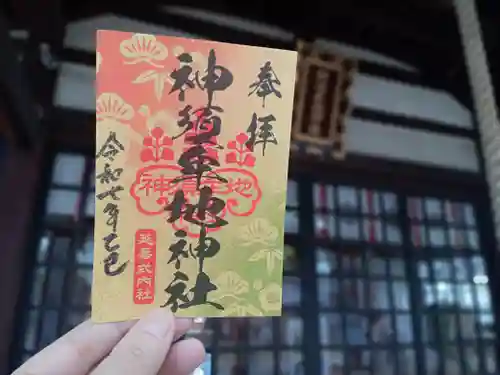 奉拝
神須牟地神社
神須牟地
延喜式内社
令和七年乙巳